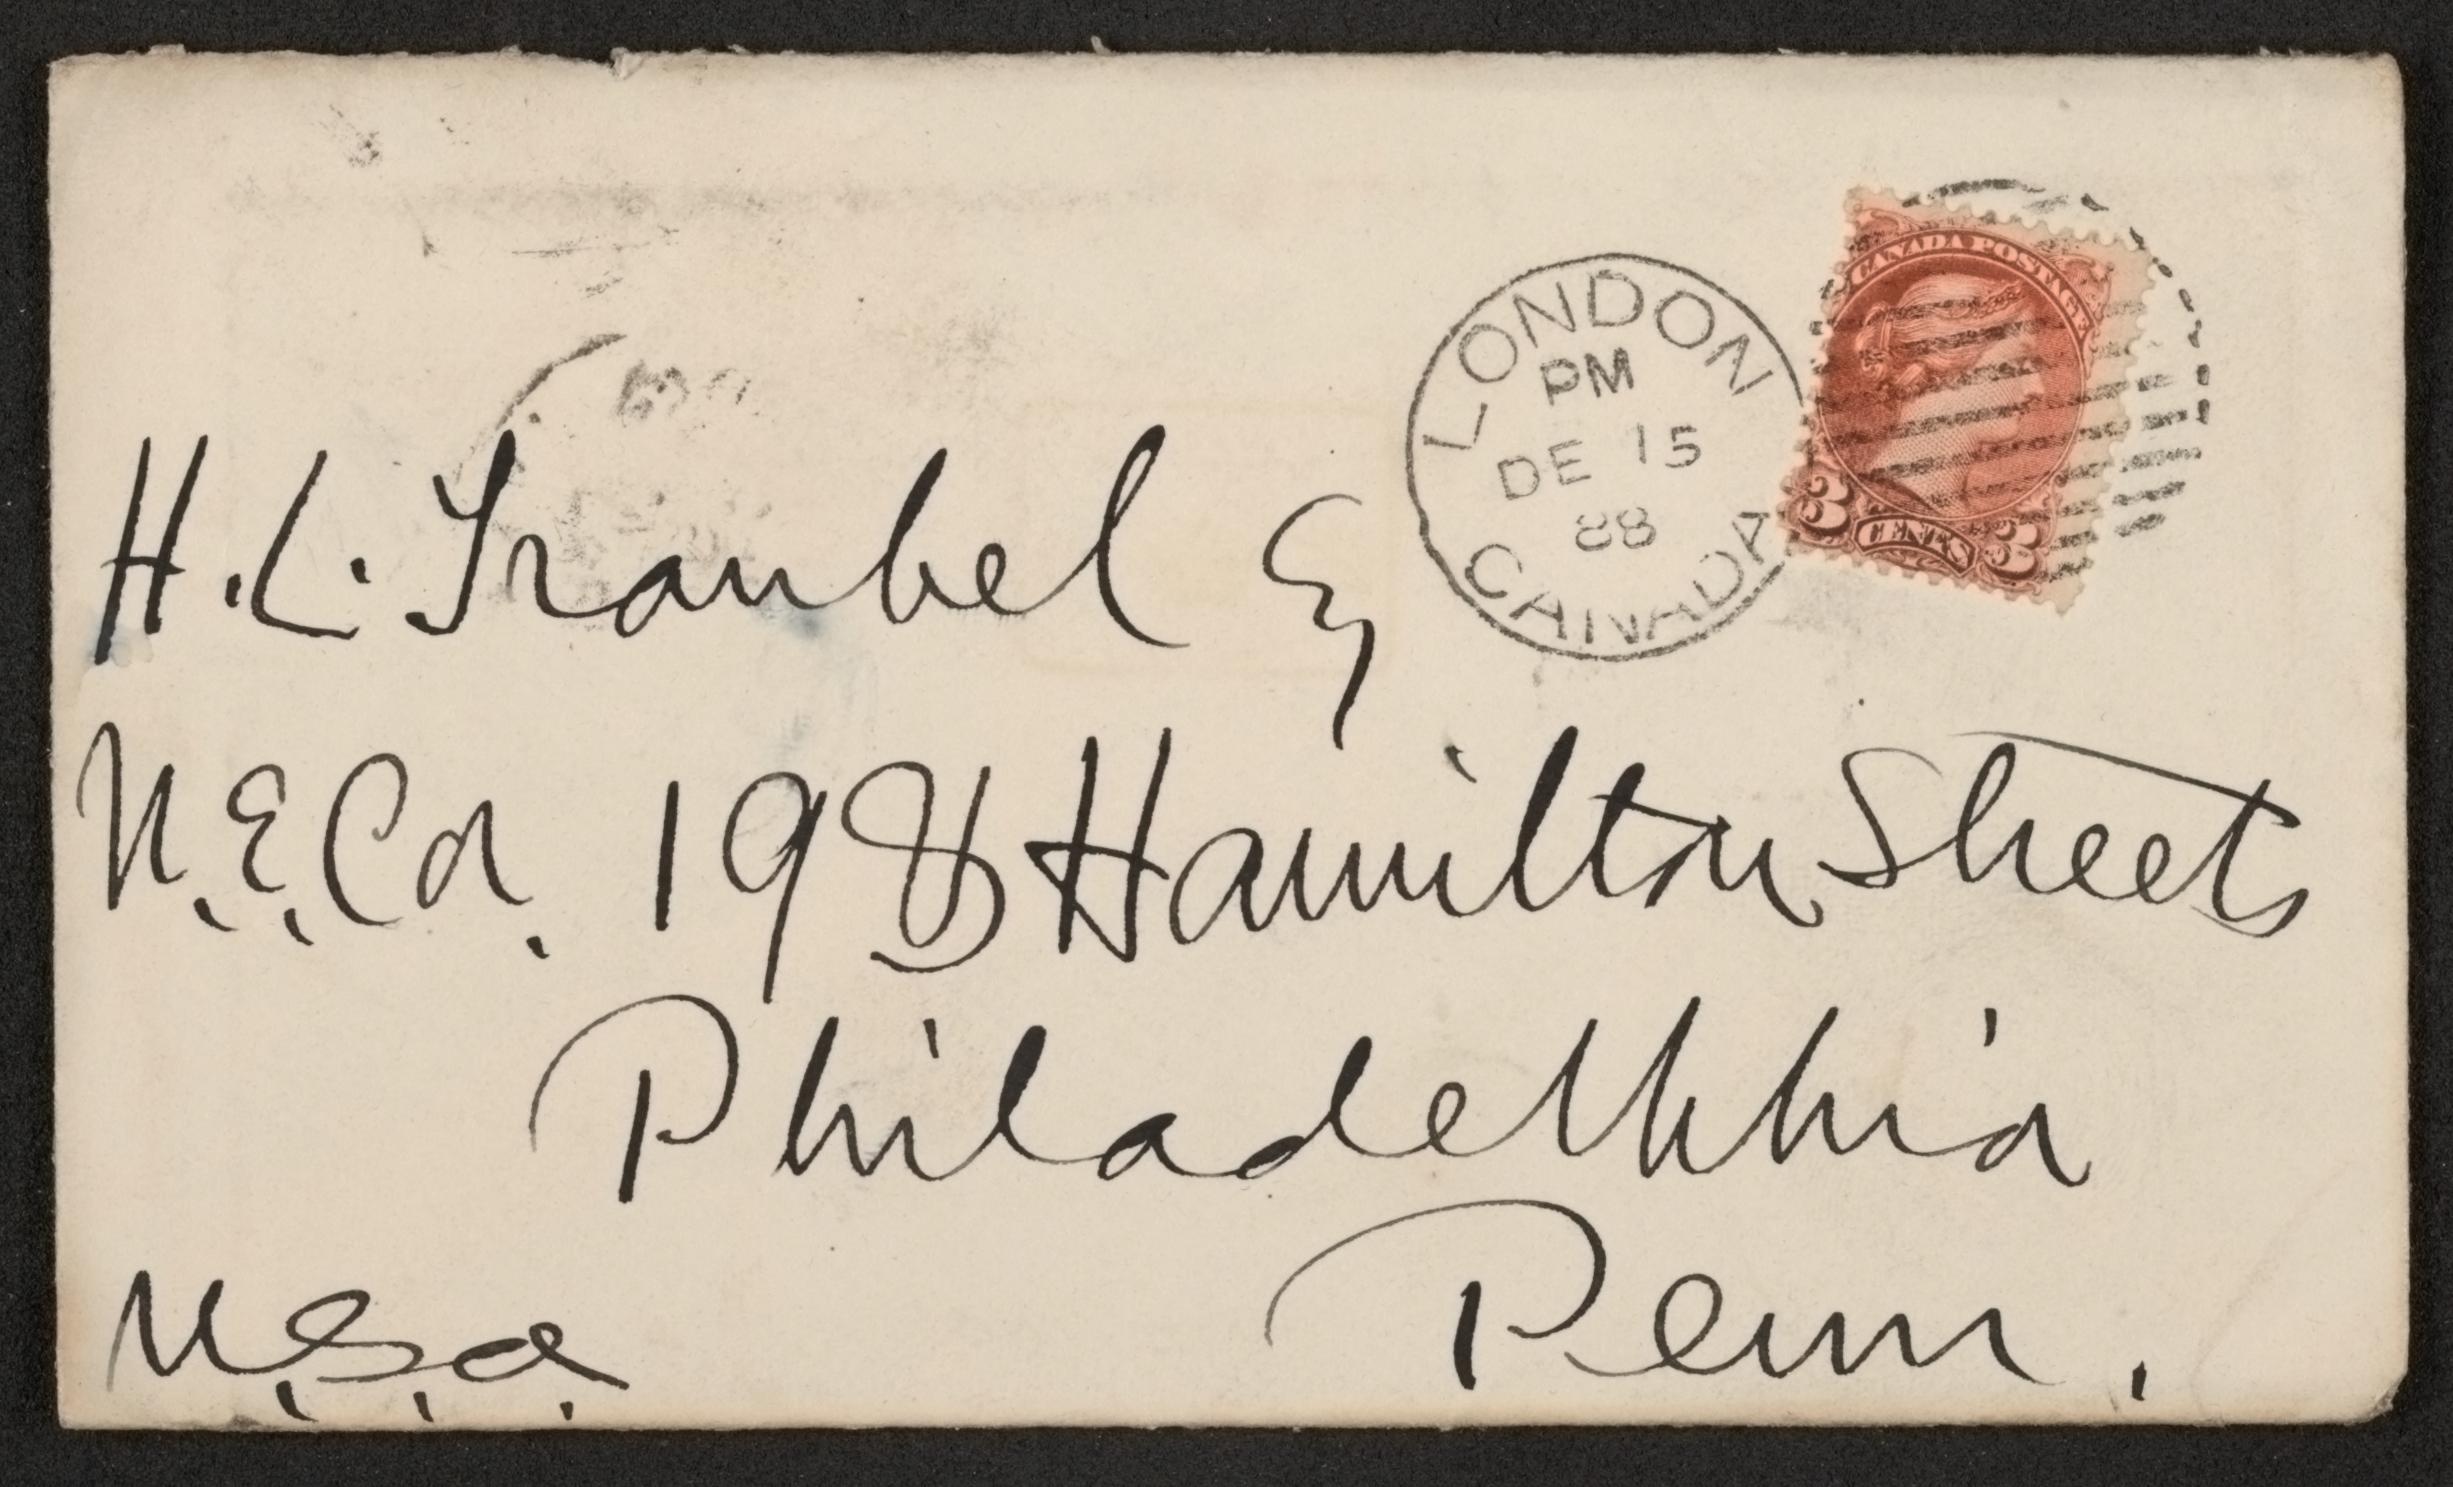 CANADA POSTAGE
3 CENTS 3
LONDON
PM
DE 15
88
CANADA
H. L. Traubel Esq
N.E. Cor. 19 & Hamilton Streets
Philadelphia
Penn.
U.S.A.